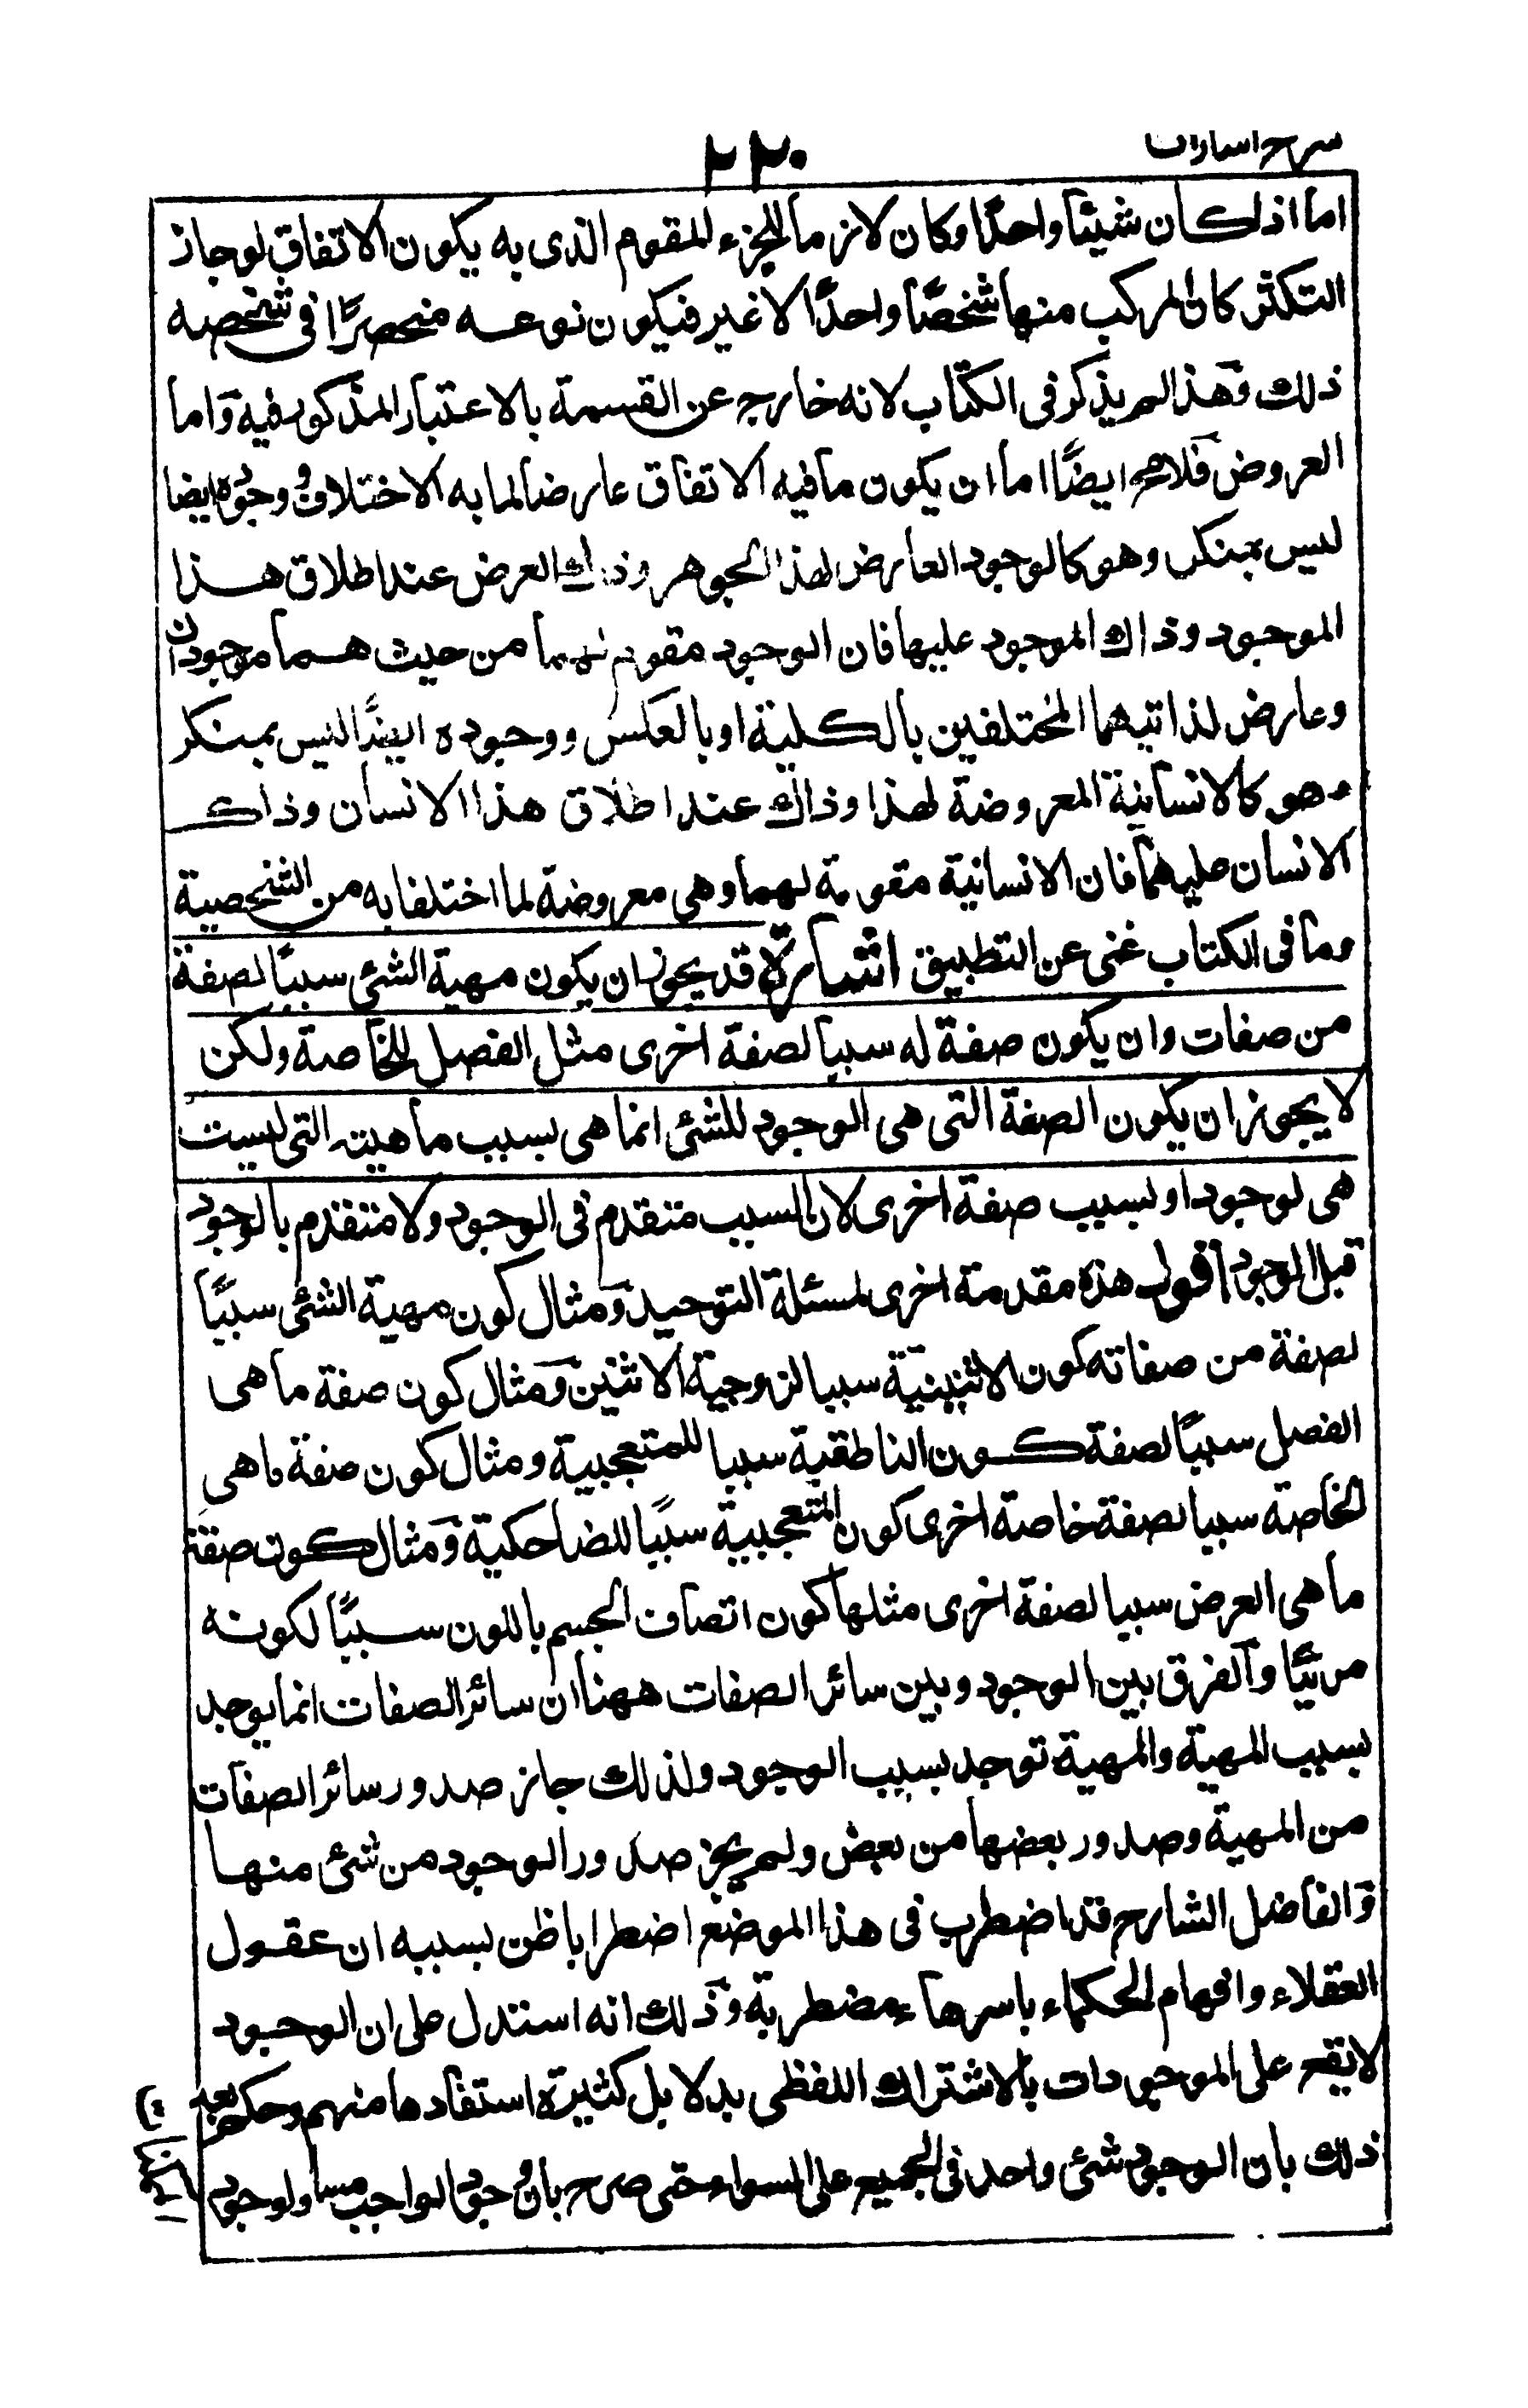 شرح اشارات
٢٢٠
اما اذا كان شيئًا واحدًا وكان لازما للجزء المقوم الذى به يكون الاتفاق لو جاز
التكثر كان المركب منها شخصًا واحدًا لا غير فيكون نوعه منحصرًا فى شخصه
ذلك وهذا لم يذكر فى الكتاب لانه خارج عن القسمة بالاعتبار المذكور فيه واما
العروض فلا يخ ايضًا اما ان يكون ما فيه الاتفاق عارضا لما به الاختلاف ووجوده ايضا
ليس بمنكر وهو كالوجود العارض لهذا الجوهر وذاك العرض عند اطلاق هذا
الموجود وذاك الموجود عليها فان الوجود مقوم لهما من حيث هما موجودان
وعارض لذاتيهما المختلفين بالكلية او بالعكس ووجوده ايضًا ليس بمنكر
وهو كالانسانية المعروضة لهذا وذاك عند اطلاق هذا الانسان وذاك
الانسان عليهما فان الانسانية مقومة لهما وهى معروضة لما اختلفا به من الشخصية
وما فى الكتاب غنى عن التطبيق اشارة قد يجوز ان يكون مهية الشئ سببًا لصفة
من صفات وان يكون صفة له سببا لصفة اخرى مثل الفصل للخاصة ولكن
لا يجوز ان يكون الصفة التى هى الوجود للشئ انما هى بسبب ماهيته التى ليست
هى لوجود او بسبب صفة اخرى لان السبب متقدم فى الوجود ولا متقدم بالوجود
قبل الوجود اقول هذه مقدمة اخرى لمسئلة التوحيد ومثال كون مهية الشئ سببًا
لصفة من صفاته كون الاثنينية سببا لزوجية الاثنين ومثال كون صفة ما هى
الفصل سببًا لصفة كون الناطقية سببا للمتعجبية ومثال كون صفة ما هى
الخاصة سببا لصفة خاصة اخرى كون المتعجبية سببًا للضاحكية ومثال كون صفة
ما هى العرض سببا لصفة اخرى مثلها كون اتصاف الجسم باللون سببًا لكونه
مرئيًا والفرق بين الوجود وبين سائر الصفات ههنا ان سائر الصفات انما يوجد
بسبب المهية والمهية توجد بسبب الوجود ولذلك جاز صدور سائر الصفات
من المهية وصدور بعضها من بعض ولم يجز صدور الوجود من شئ منها
والفاضل الشارح قد اضطرب فى هذا الموضع اضطرابا ظن بسببه ان عقول
العقلاء وافهام الحكماء باسرها مضطربة وذلك انه استدل على ان الوجود
لا يقع على الموجودات بالاشتراك اللفظى بدلايل كثيرة استفادها منهم وحكم بعد
ذلك بان الوجود شئ واحد فى الجميع على السواء حتى صرح بان وجود الواجب مساو لوجود